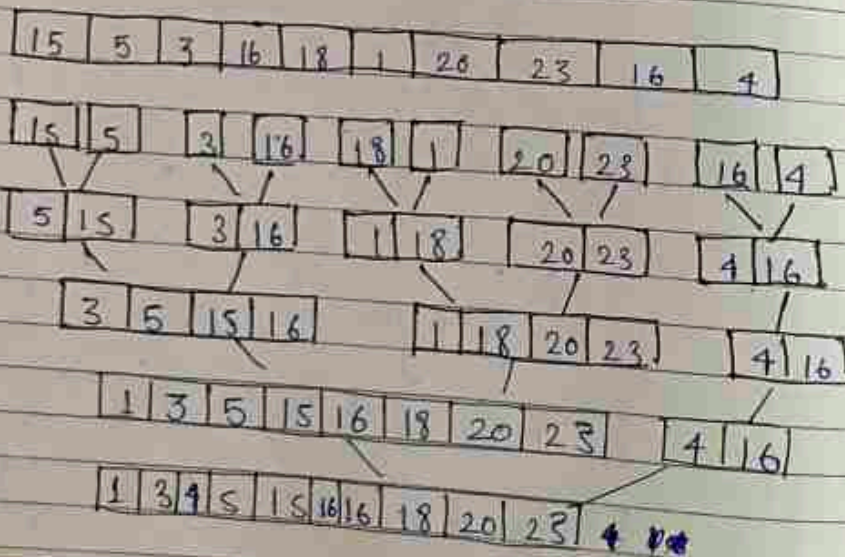 15 5 3 16 18 1 20 23 16 4
15 5 3 16 18 1 20 23 16 4
5 15 3 16 1 18 20 23 4 16
3 5 15 16 1 18 20 23 4 16
1 3 5 15 16 18 20 23 4 16
1 3 4 5 15 16 16 18 20 23